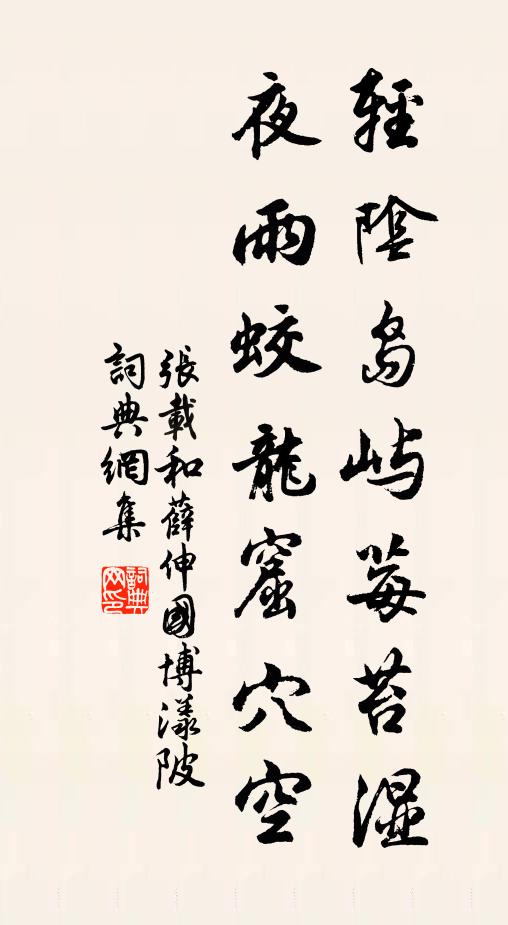 輕陰島屿莓苔濕
夜雨蛟龍窟穴空
張載和薛伸國博漾陂
詞典網集
詞典
网印